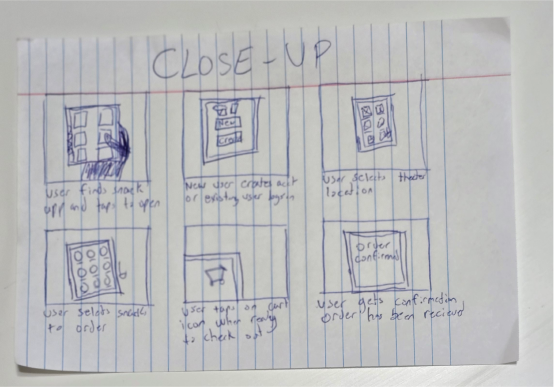 CLOSE-UP
New
Create
user finds snack
app and taps to open
New user creates acct
or existing user log in
user selects theater
location
order
confirmed
user selects snacks
to order
user taps on cart
icon when ready
to check out
user gets confirmation
order has been recieved